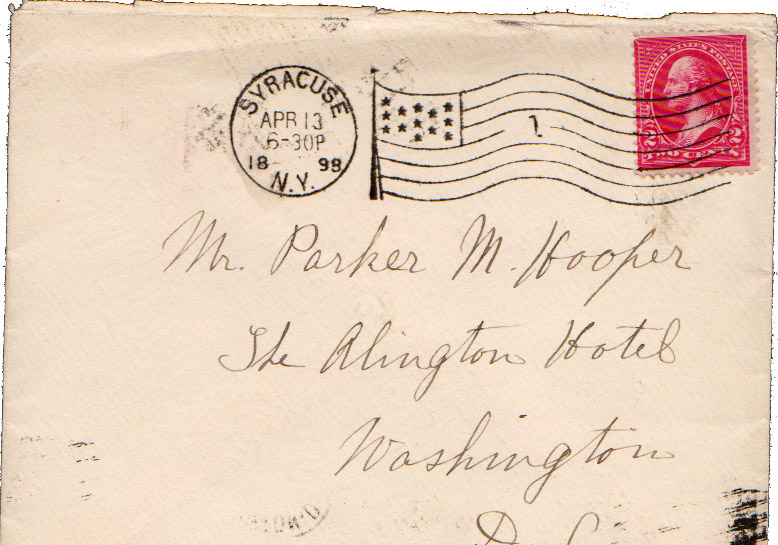 SYRACUSE
APR 13
6-30P
18 98
N.Y.
1
UNITED STATES POSTAGE
2 2
TWO CENTS
Mr. Parker M. Hooper
The Alington Hotel
Washington
D. C.